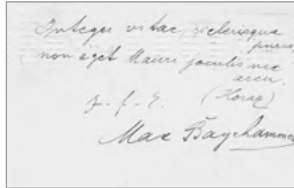 Integer vitae, scelerisque
purus,
non eget Mauri jaculis nec
arcu.
z. f. E. (Horaz)
Max Bayrhammer